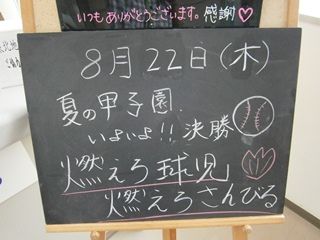 いつもありがとうございます。感謝♡
8月22日(木)
夏の甲子園.
いよいよ!!決勝
燃えろ球児
燃えろさんびる